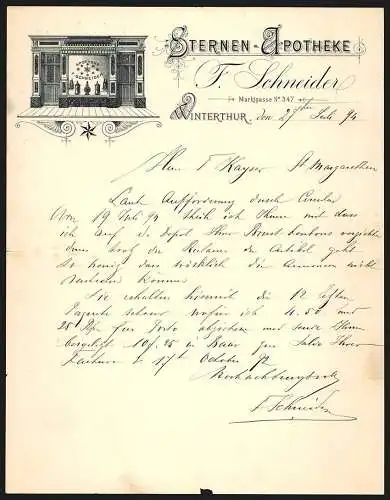 STERNEN-APOTHEKE
F. Schneider
Marktgasse No 347
WINTERTHUR, den 27ten Juli 94
Herrn F Kayser St. Margarethen
Laut Aufforderung durch Circular
vom 19 Juli 94 theile ich Ihnen mit dass
ich auf das depot Ihrer Brust bonbons verzichte
denn trotz der Reclame der Artikel geht
so wenig dass wirklich die Annoncen nicht
können
Sie erhalten hiermit die 12
Paquete retour wofür ich 4.50 und
25 Rp für Porto abziehen und sende Ihnen
10 f. 25 in Baar per Saldo Ihrer
Factura v 17ten October 92
Hochachtungsvoll
F. Schneider